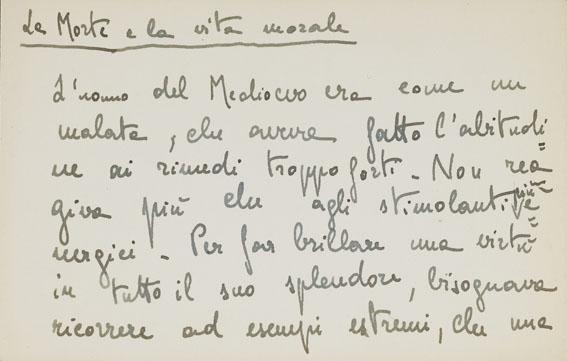 La Morte e la vita morale
L'uomo del Medioevo era come un
malato, che aveva fatto l'abitudi
ne ai rimedi troppo forti. Non rea
giva più che agli stimolanti più e
nergici. Per far brillare una virtù
in tutto il suo splendore, bisognava
ricorrere ad esempi estremi, che una